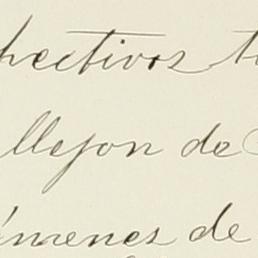 pectivos t
llejon de
ímenes de